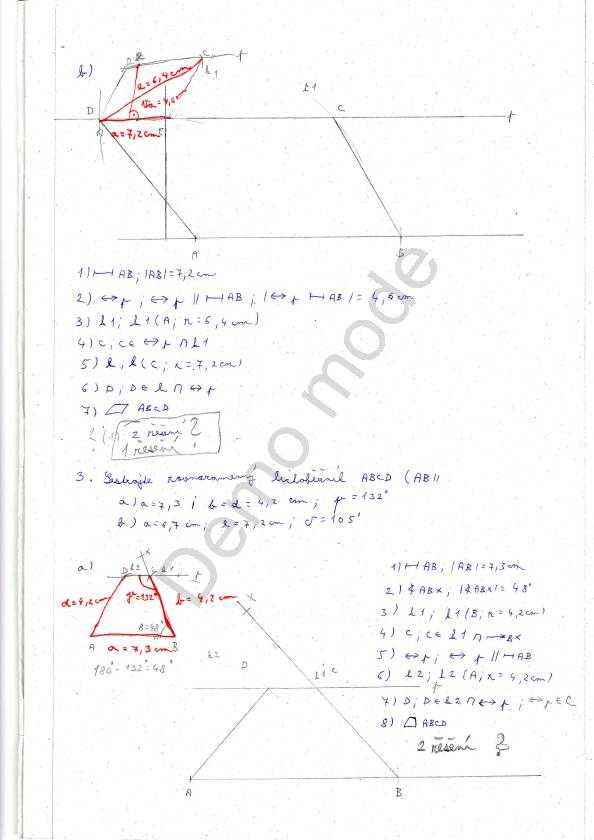 b)
D
C
k1
p
e=6,4 cm
va=4,6cm
a=7,2cm
k1
C
p
A
B
1) ⊢⊣ AB; |AB|=7,2cm
2) ↔ p; ↔ p ∥ ⊢⊣ AB; |↔ p ⊢⊣ AB| = 4,6cm
3) k1; k1 (A; r=6,4cm)
4) C; C∈ ↔ p ∩ k1
5) k; k(C; r=7,2cm)
6) D; D∈ k ∩ ↔ p
7) ▱ ABCD
2 řešení ?
1 řešení !
3. Sestrojte rovnoramenný lichoběžník ABCD (AB∥
a) a=7,3 ; b=d=4,2 cm; γ=132°
b) a=6,7cm; e=7,2cm; δ=105°
a)
X
D k2 C k1 p
d=4,2cm
γ=132°
b=4,2cm
β=48°
A
B
a=7,3cm
180°-132°=48°
1) ⊢⊣ AB, |AB|=7,3cm
2) ∢ ABX; |∢ ABX|=48°
3) k1; k1 (B, r=4,2cm)
4) C; C∈ k1 ∩ ↦ BX
5) ↔ p; ↔ p ∥ ⊢⊣ AB
6) k2; k2 (A; r=4,2cm)
7) D; D∈ k2 ∩ ↔ p; ↔ p∈C
8) ABCD
2 řešení ?
X
k2
D
k1 C
p
A
B
Demo mode